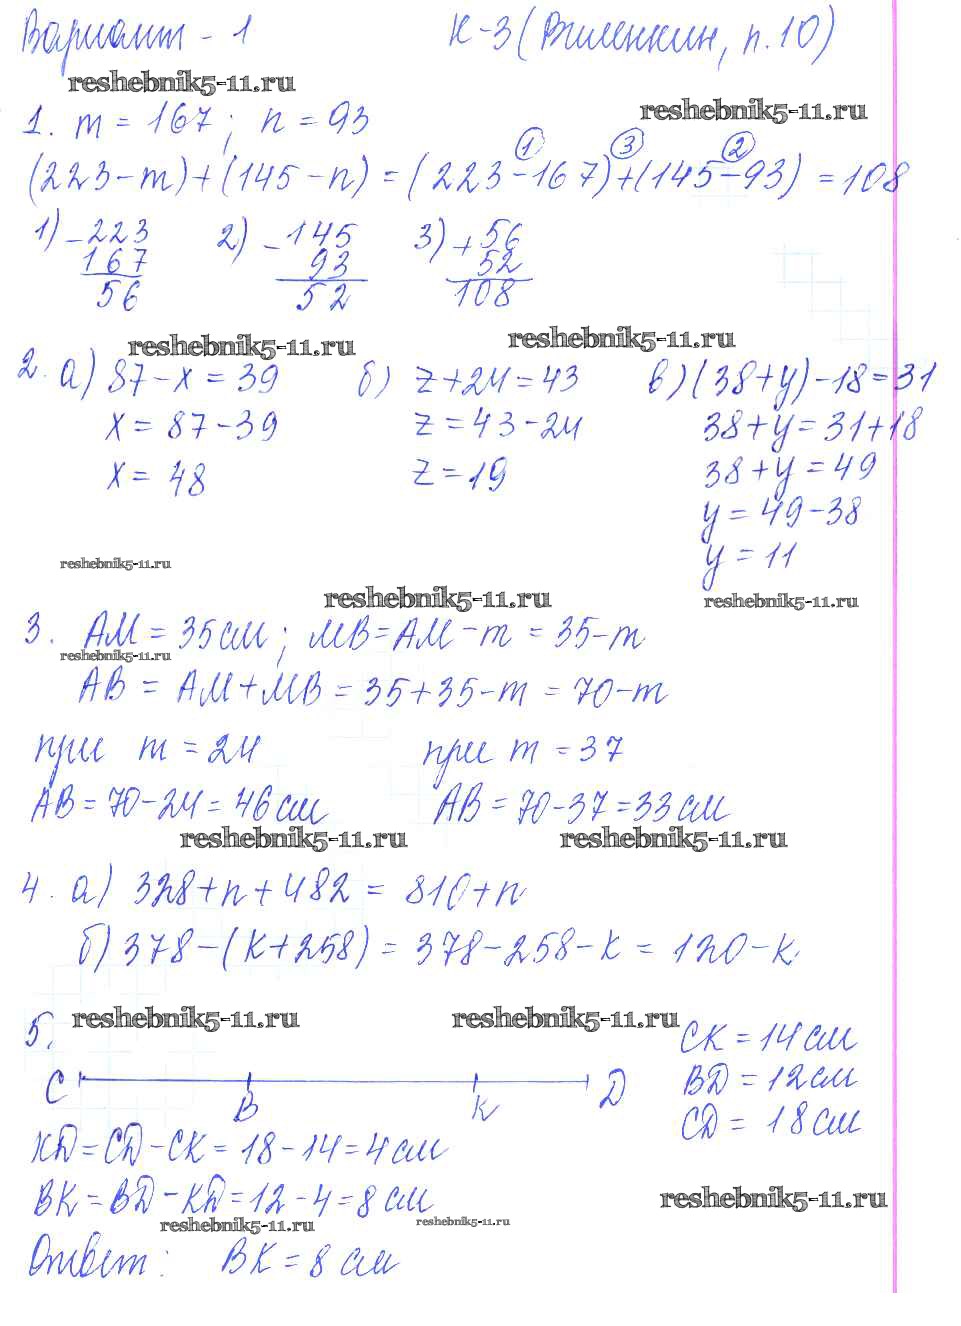 Вариант - 1 К-3 (Виленкин, п.10)
reshebnik5-11.ru
reshebnik5-11.ru
1. m = 167; n = 93
(223-m)+(145-n)=(223-167)+(145-93)=108
1 3 2
1) -223 2) -145 3) +56
167 93 52
56 52 108
reshebnik5-11.ru reshebnik5-11.ru
2. а) 87-x=39 б) z+24=43 в) (38+y)-18=31
x=87-39 z=43-24 38+y=31+18
x=48 z=19 38+y=49
y=49-38
y=11
reshebnik5-11.ru
reshebnik5-11.ru reshebnik5-11.ru
3. AM=35см; MB=AM-m=35-m
reshebnik5-11.ru
AB=AM+MB=35+35-m=70-m
при m=24 при m=37
AB=70-24=46см AB=70-37=33см
reshebnik5-11.ru reshebnik5-11.ru
4. а) 328+n+482=810+n
б) 378-(k+258)=378-258-k=120-k
reshebnik5-11.ru reshebnik5-11.ru
5. CK=14см
BD=12см
C B K D
CD=18см
KD=CD-CK=18-14=4см
BK=BD-KD=12-4=8см
reshebnik5-11.ru
reshebnik5-11.ru reshebnik5-11.ru
Ответ: BK=8см